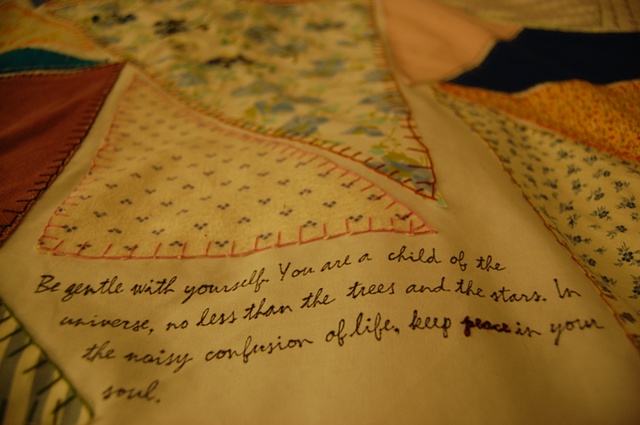 Be gentle with yourself. You are a child of the
universe, no less than the trees and the stars. In
the noisy confusion of life, keep peace in your
soul.